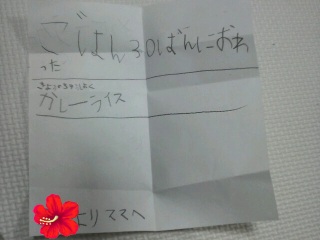 ごはん30ばんにおわ
った
きょうのちょうしょく
カレーライス
よりママへ